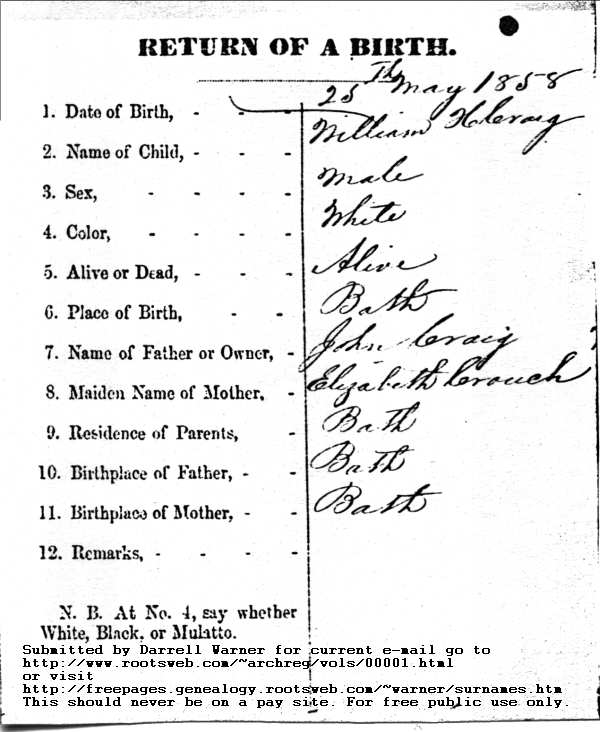 RETURN OF A BIRTH.
1. Date of Birth, - - - 25th May 1858
2. Name of Child, - - - William H Craig
3. Sex, - - - - Male
4. Color, - - - - White
5. Alive or Dead, - - - Alive
6. Place of Birth, - - Bath
7. Name of Father or Owner, - John Craig
8. Maiden Name of Mother, - Elizabeth Crouch
9. Residence of Parents, - Bath
10. Birthplace of Father, - - Bath
11. Birthplace of Mother, - - Bath
12. Remarks, - - - -
N. B. At No. 4, say whether
White, Black, or Mulatto.
Submitted by Darrell Warner for current e-mail go to
http://www.rootsweb.com/~archreg/vols/00001.html
or visit
http://freepages.genealogy.rootsweb.com/~warner/surnames.htm
This should never be on a pay site. For free public use only.